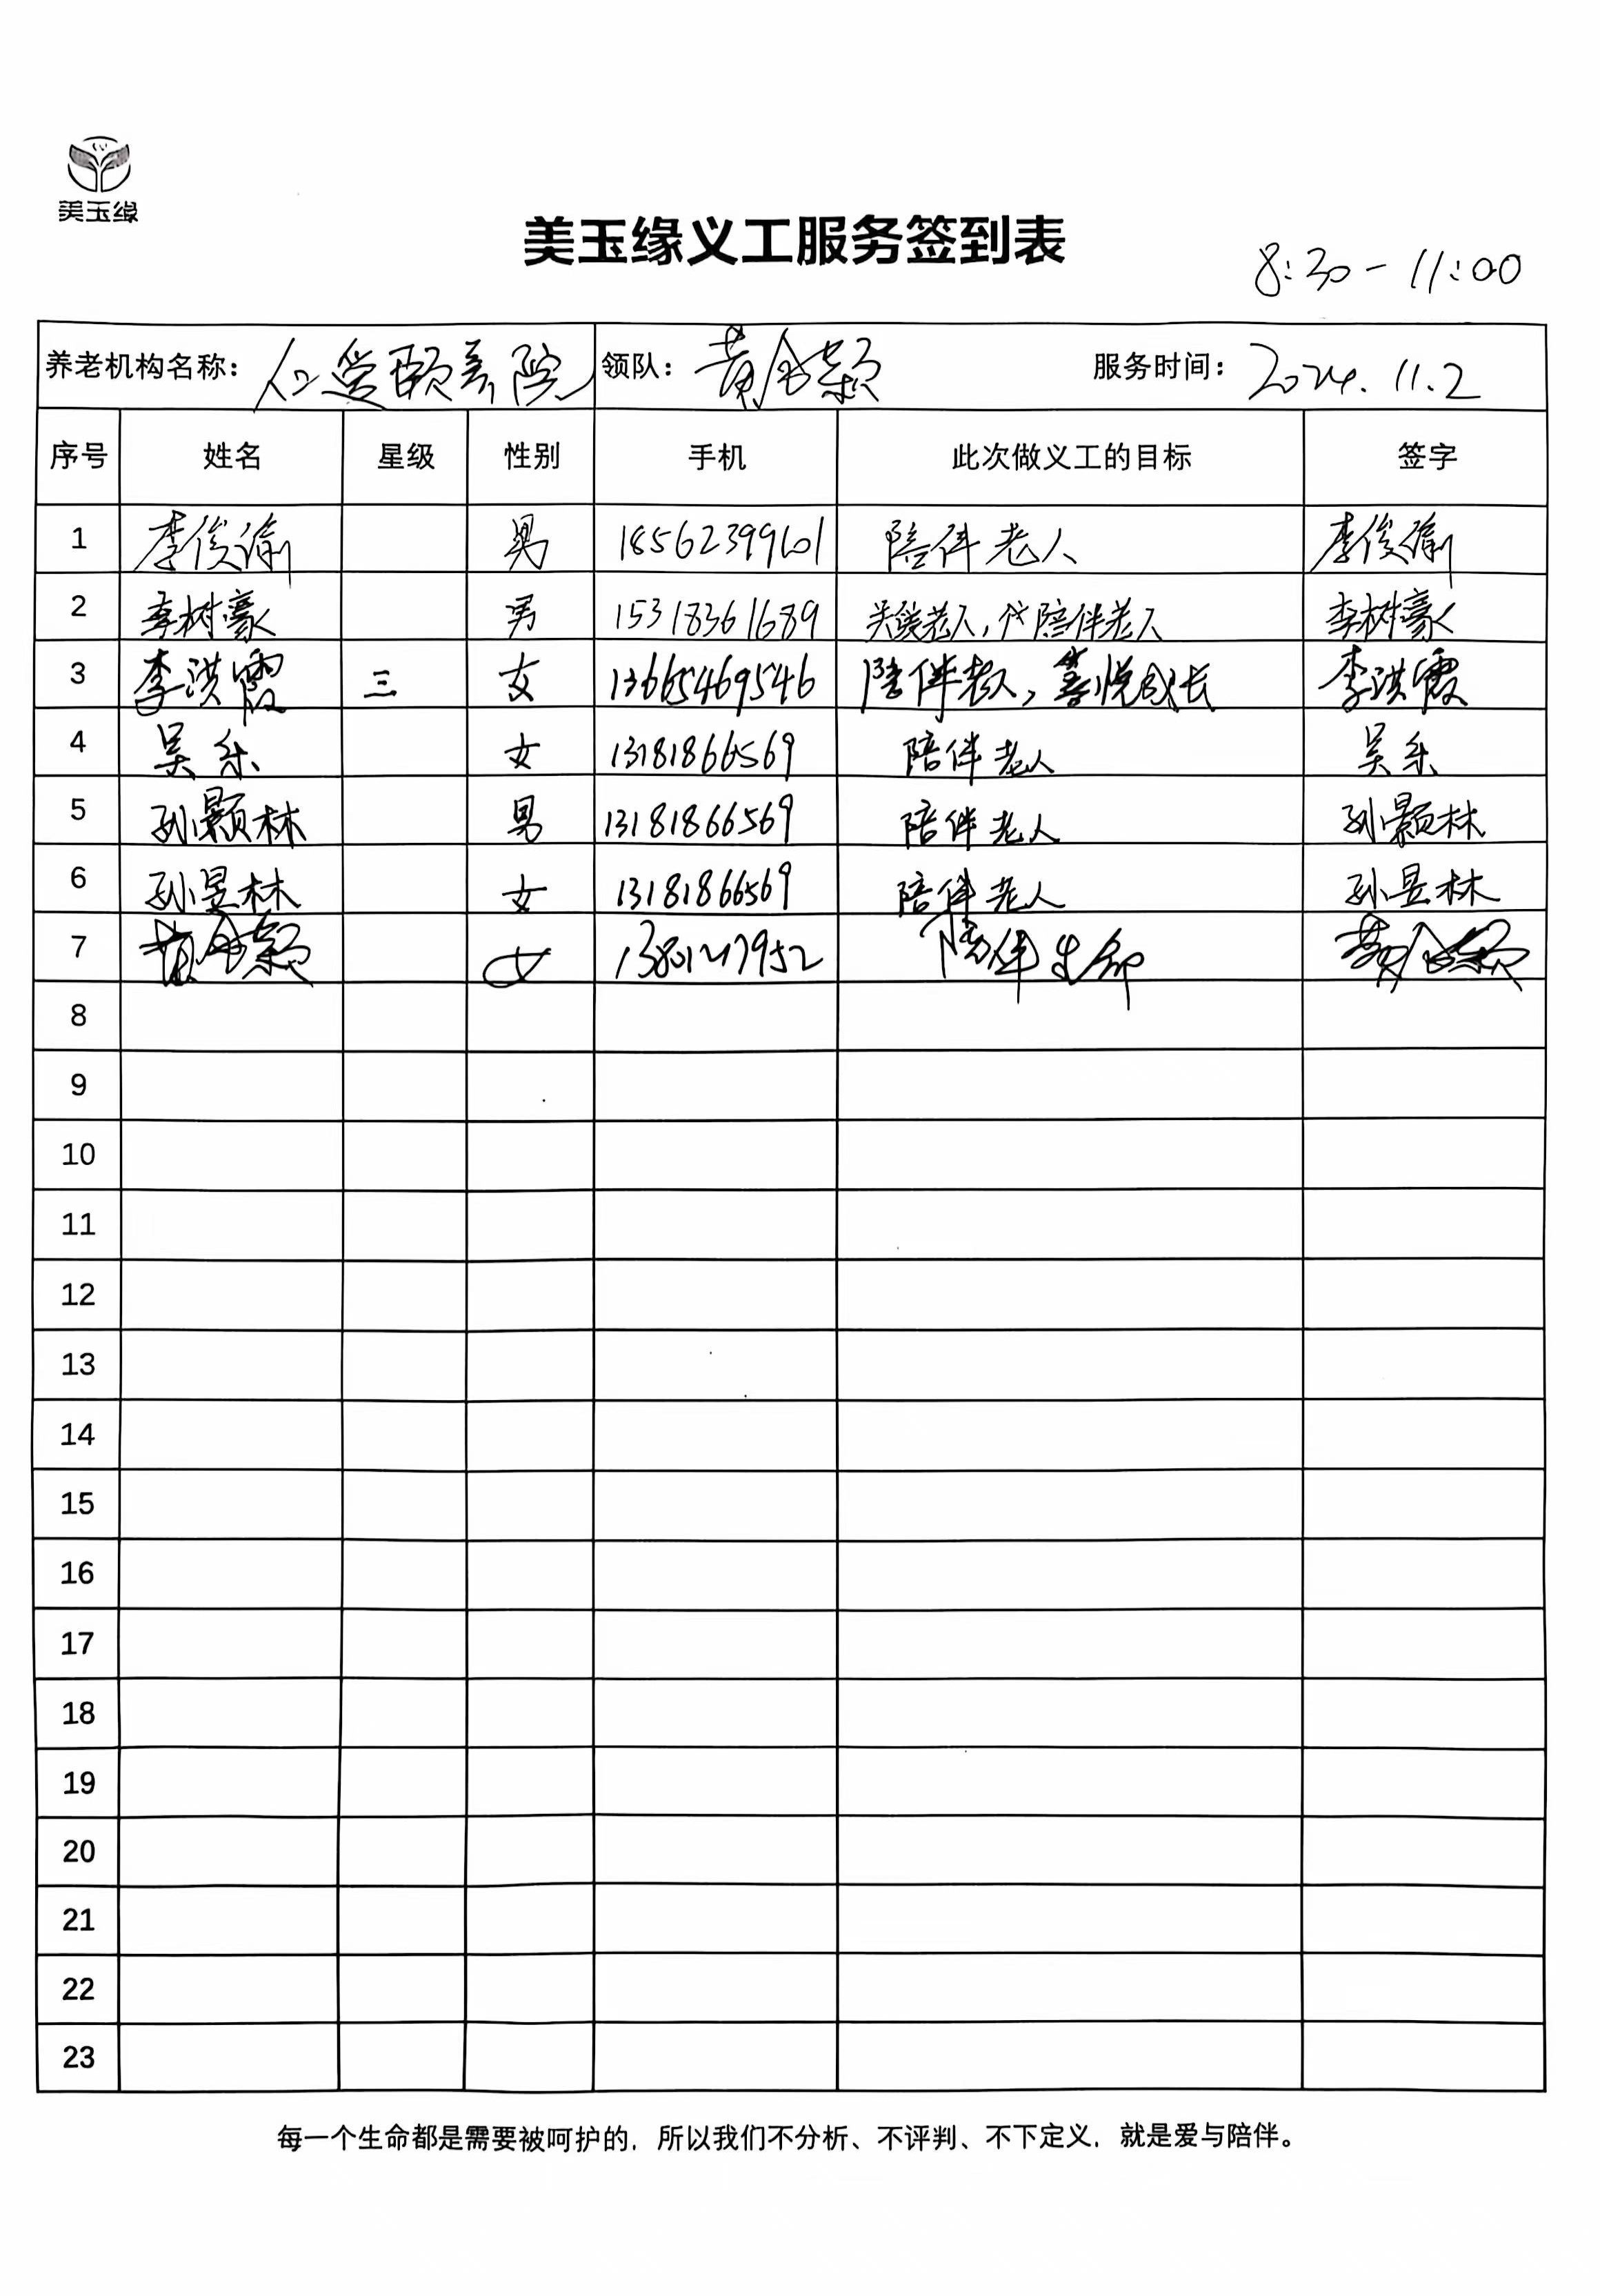 美玉缘
美玉缘义工服务签到表
8:30-11:00
养老机构名称: 仁爱颐养院 领队: 黄金颖 服务时间: 2024.11.2
序号 姓名 星级 性别 手机 此次做义工的目标 签字
1 李俊谕 男 18562399601 陪伴老人 李俊谕
2 李树豪 男 15318361689 关爱老人, 陪伴老人 李树豪
3 李洪霞 三 女 13665469546 陪伴老人, 喜悦成长 李洪霞
4 吴乐 女 13181866569 陪伴老人 吴乐
5 孙颢林 男 13181866569 陪伴老人 孙颢林
6 孙昱林 女 13181866569 陪伴老人 孙昱林
7 黄金颖 女 陪伴生命 黄金颖
8
9
10
11
12
13
14
15
16
17
18
19
20
21
22
23
每一个生命都是需要被呵护的,所以我们不分析、不评判、不下定义,就是爱与陪伴。